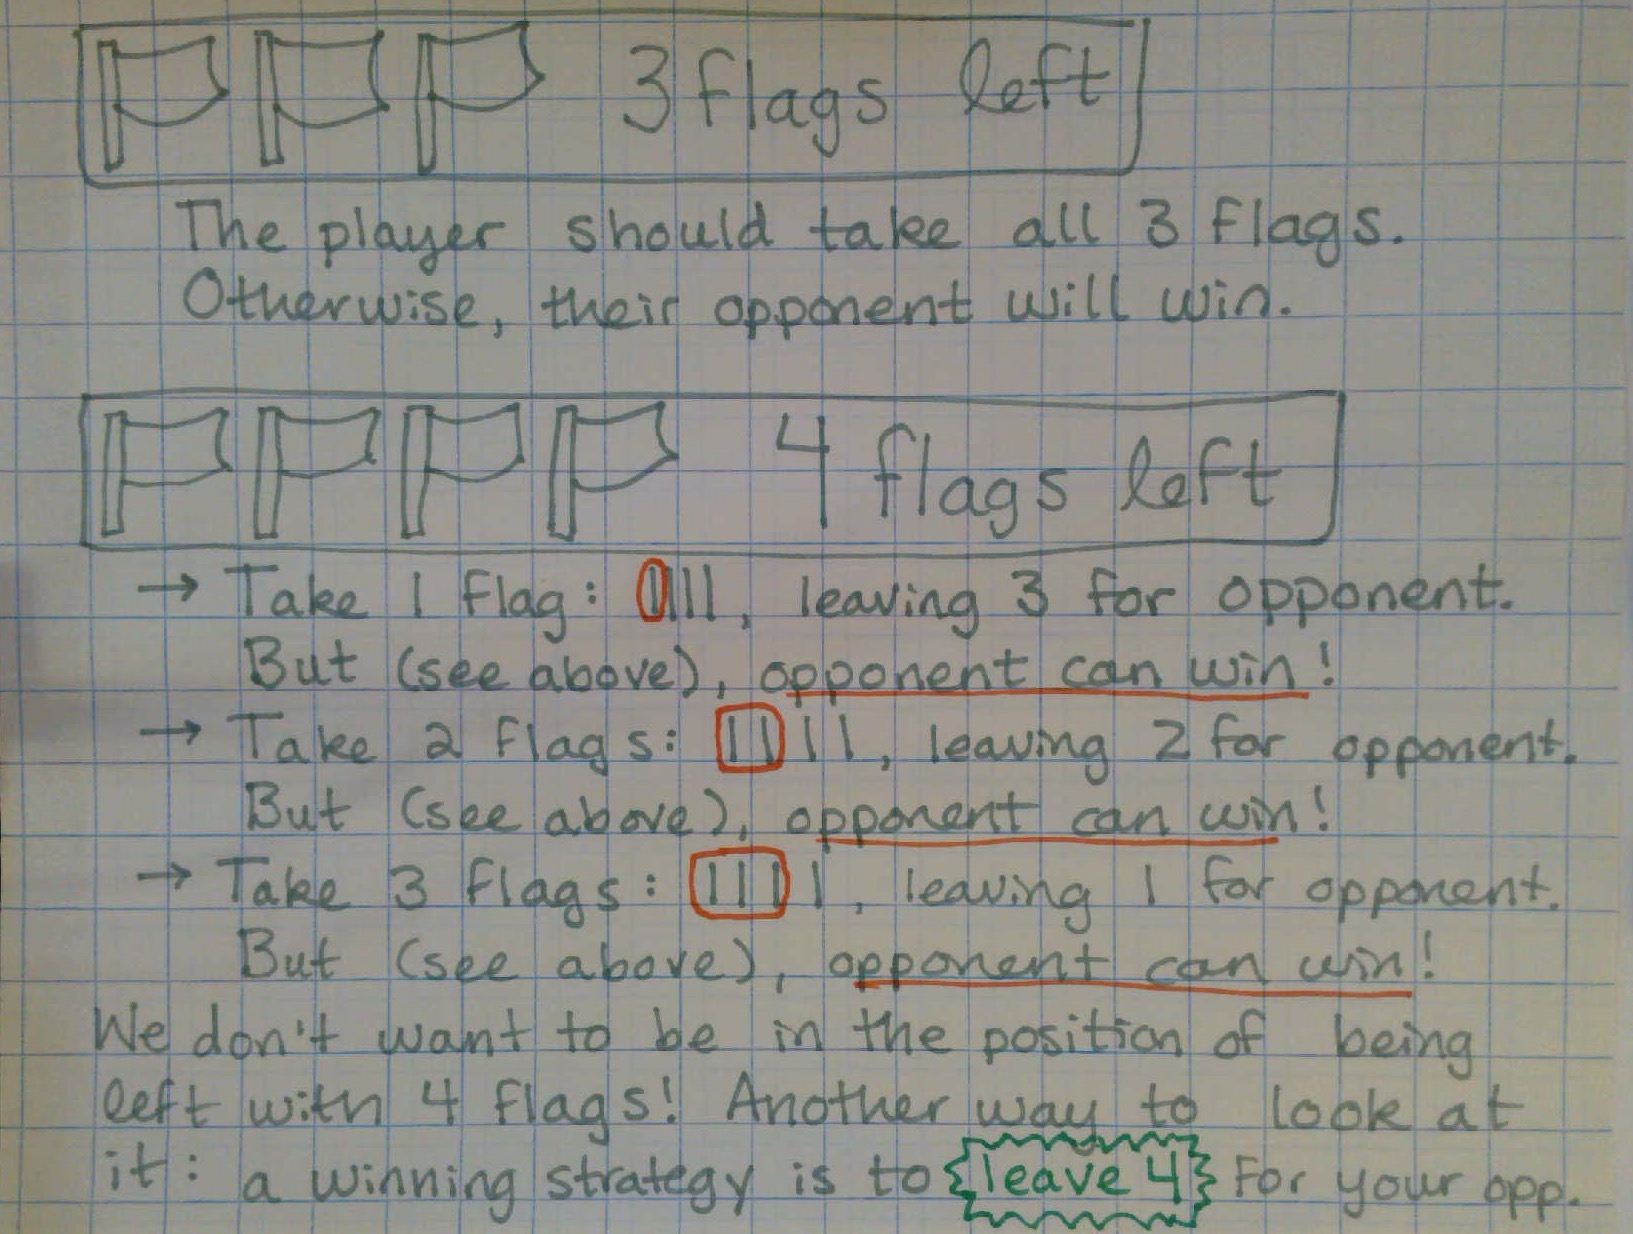 3 flags left
The player should take all 3 flags.
Otherwise, their opponent will win.
4 flags left
→ Take 1 flag: ||||, leaving 3 for opponent.
But (see above), opponent can win!
→ Take 2 flags: ||||, leaving 2 for opponent.
But (see above), opponent can win!
→ Take 3 flags: ||||, leaving 1 for opponent.
But (see above), opponent can win!
We don't want to be in the position of being
left with 4 flags! Another way to look at
it: a winning strategy is to leave 4 for your opp.